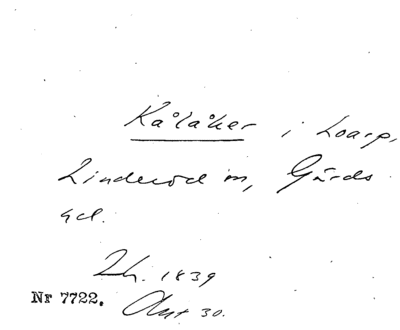 Kålåker i Loarp,
Linderöd sn, Gärds
hd.
Lh. 1839
Nr 7722. Akt 30.